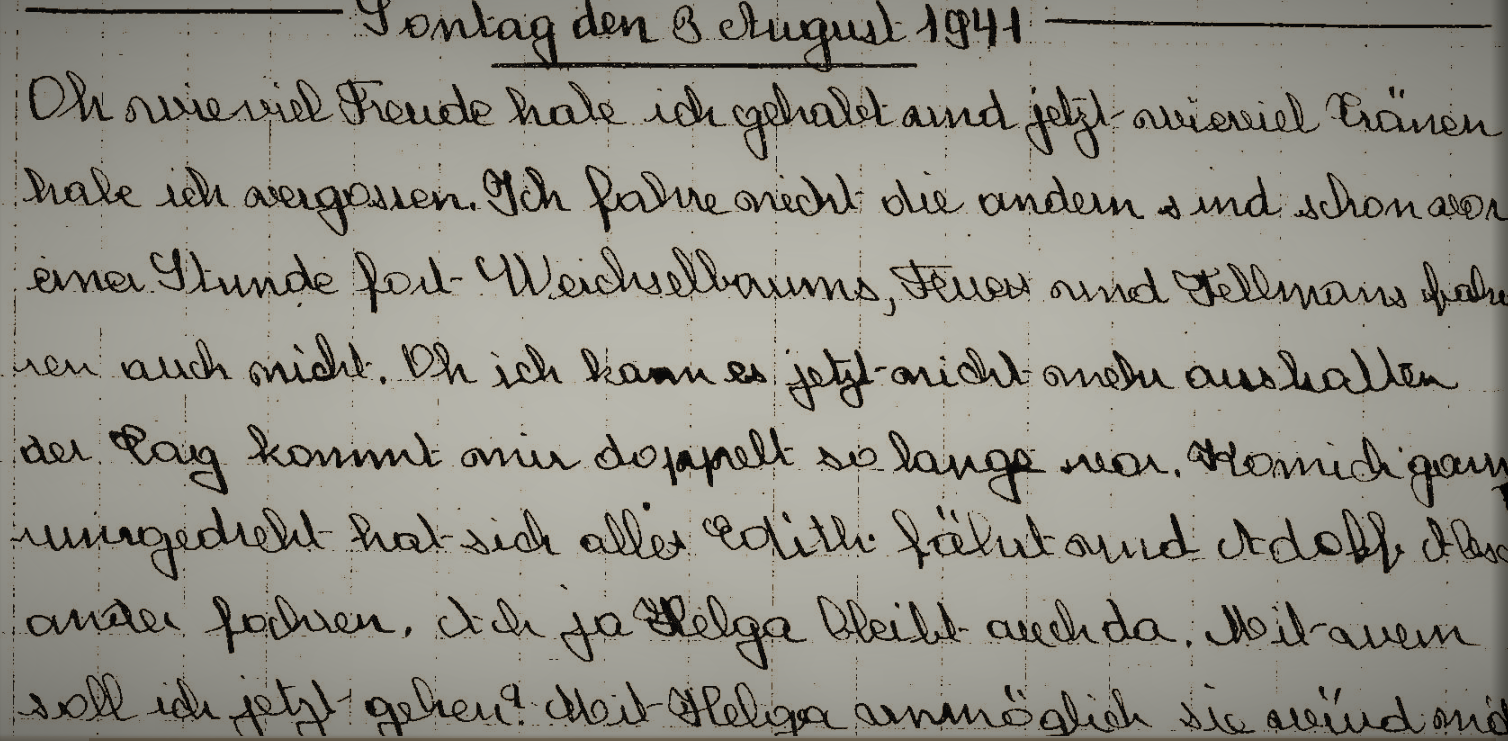 Sontag den 3 August 1941
Oh wieviel Freude habe ich gehabt und jetzt wieviel Tränen
habe ich vergossen. Ich fahre nicht die andern sind schon vor
einer Stunde fort Weichselbaums, Feuer und Fellmans fah
ren auch nicht. Oh ich kann es jetzt nicht mehr aushalten
der Tag kommt mir doppelt so lange vor. Komich ganz
umgedreht hat sich alles Edith fährt und Adolf
fahren. Ach ja Helga bleibt auch da. Mit wem
soll ich jetzt gehen? Mit Helga unmöglich sie würd